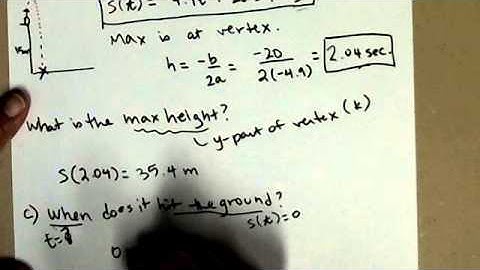 s(t) =
Max is at vertex.
h = -b/2a = -20/2(-4.9) = 2.04 sec.
What is the max height?
y-part of vertex (k)
s(2.04) = 35.4 m
c) When does it hit the ground?
t=? s(t)=0
0